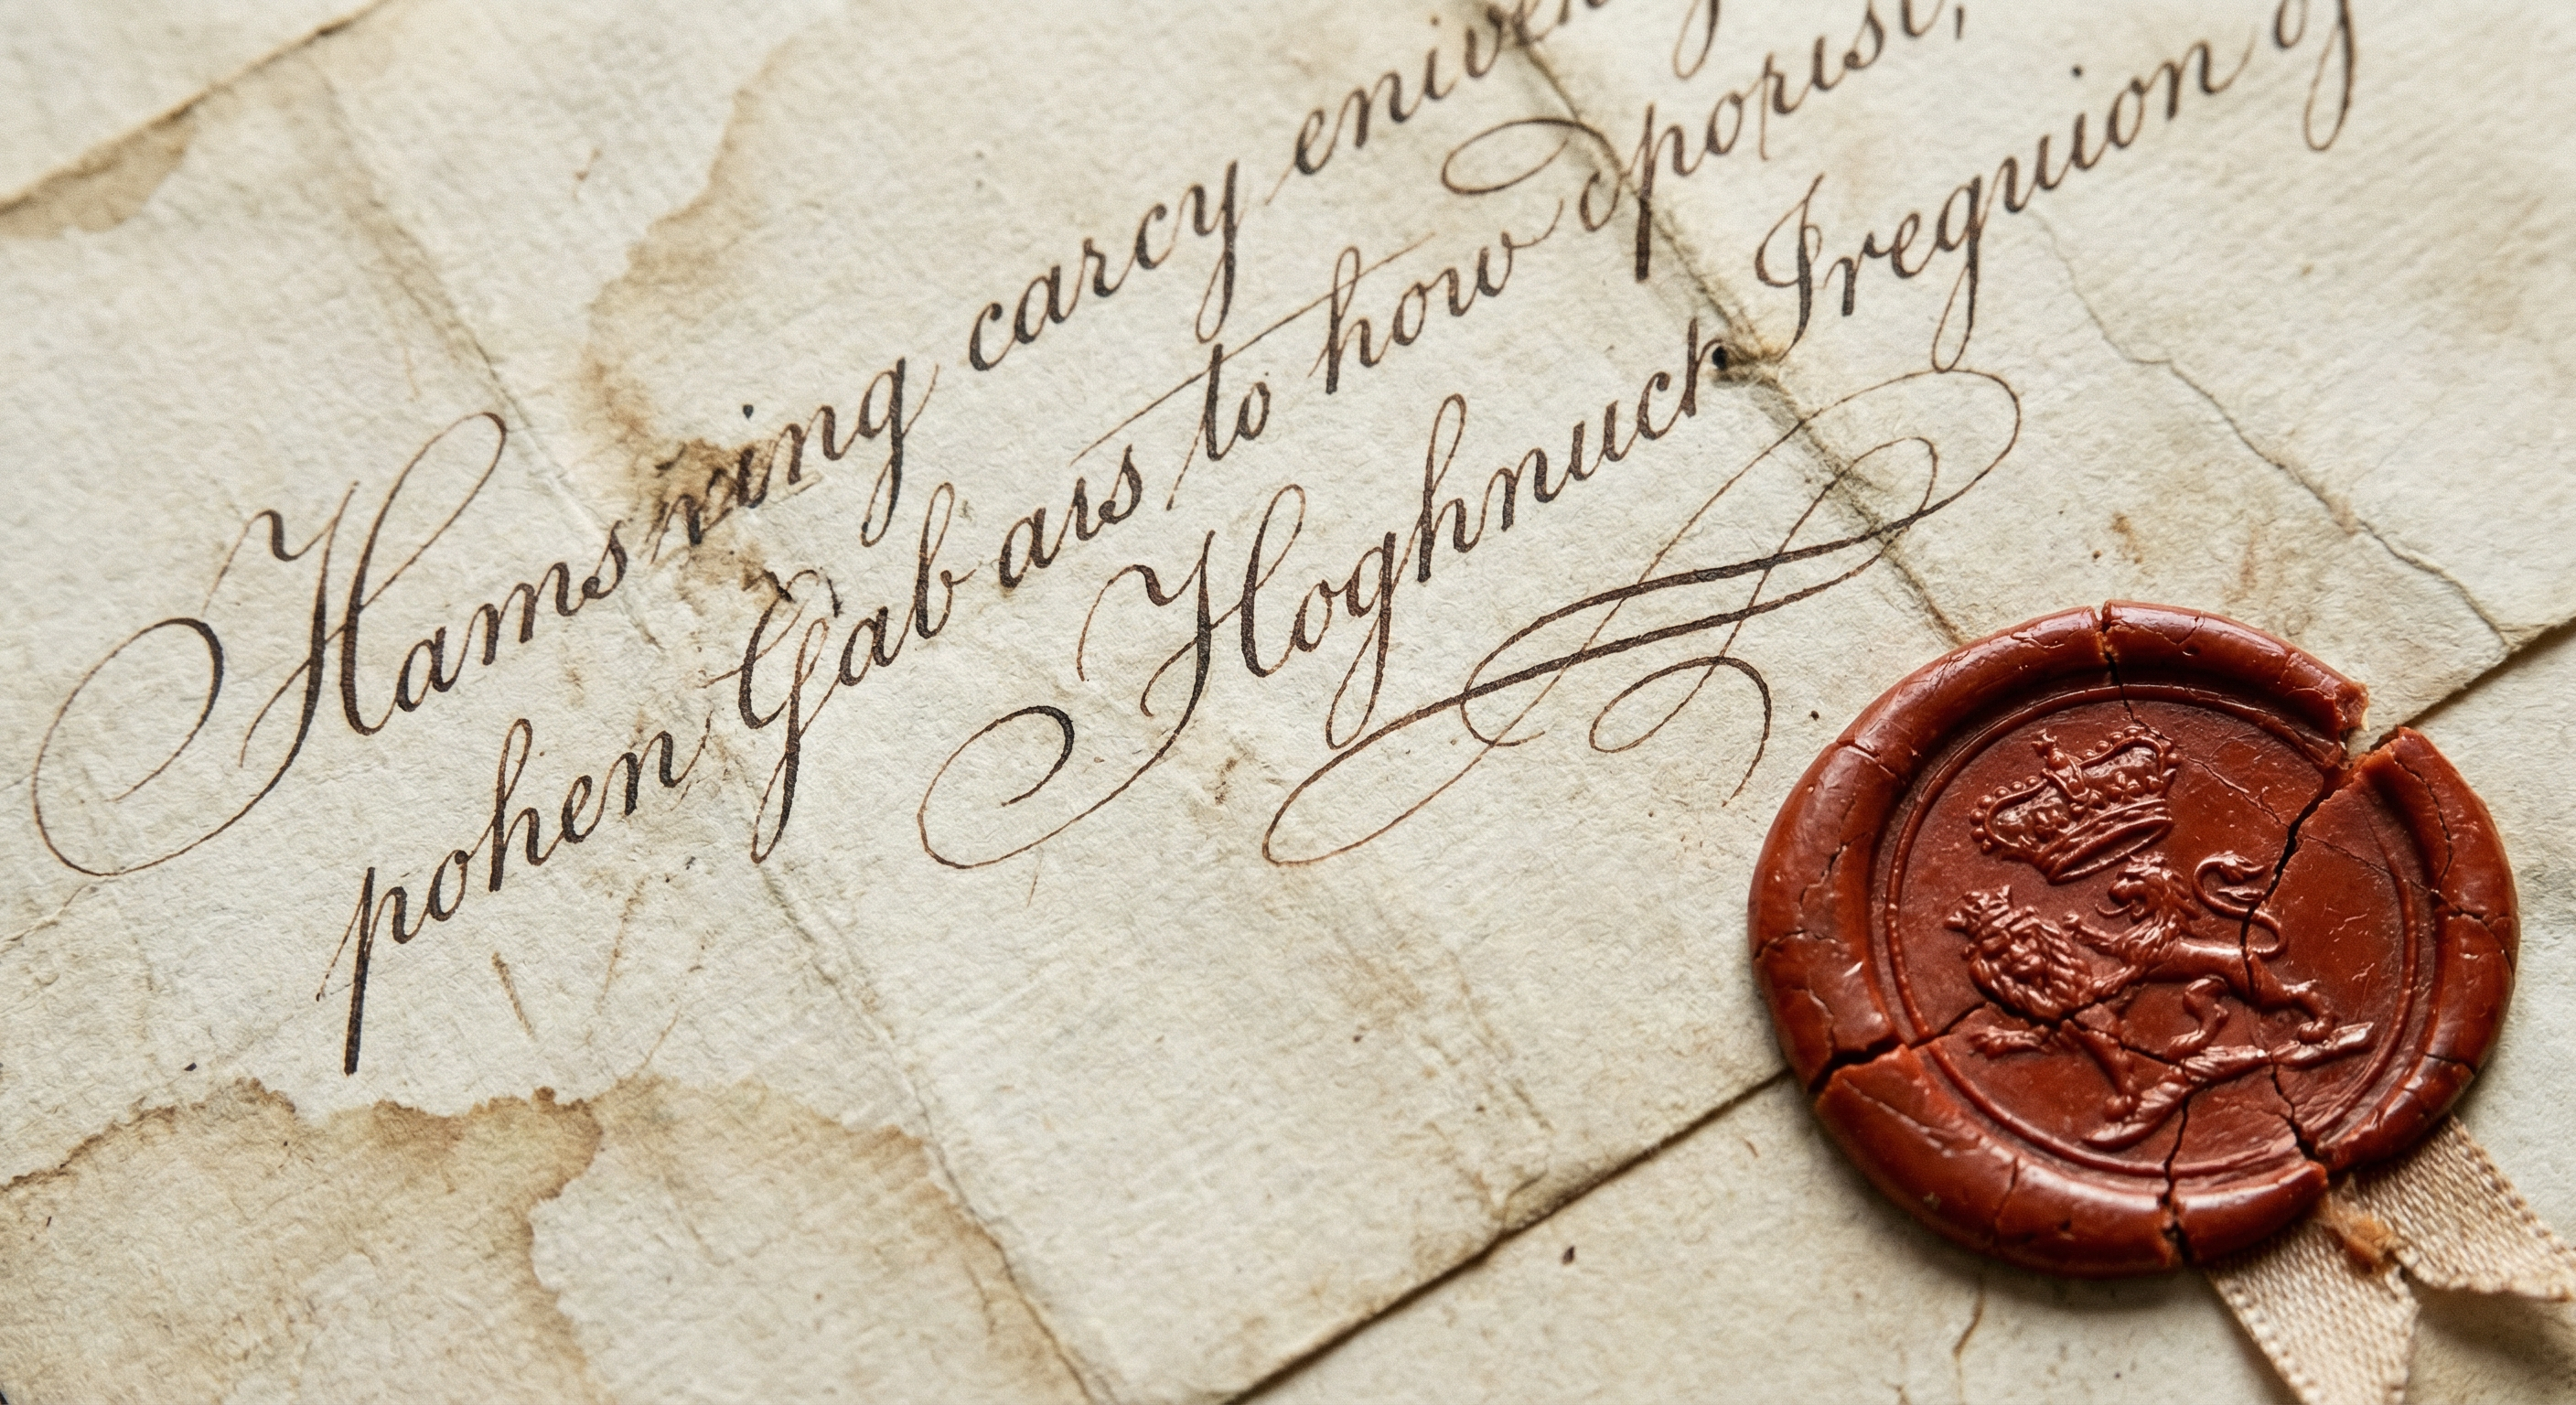 Hams ving carcy
pohen Gab ais to how porist,
Hoghnuch Ireguion of